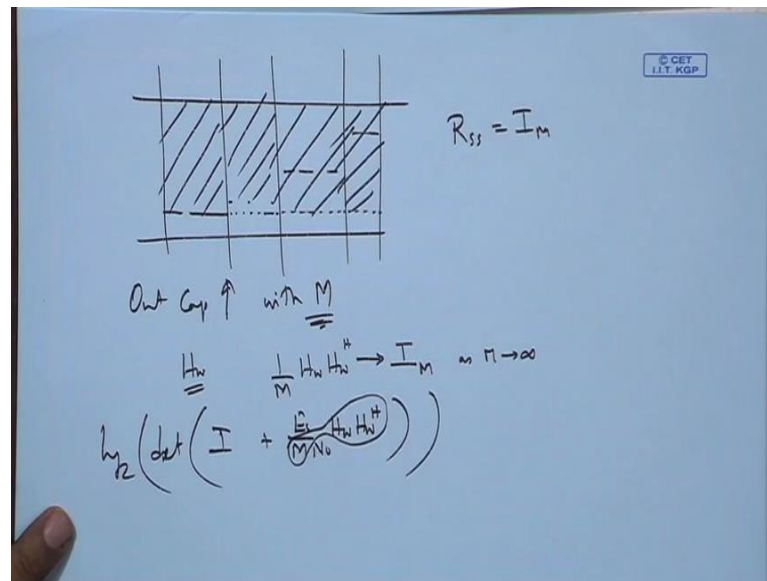 © CET
I.I.T. KGP
R_ss = I_M
Out Cap ↑ with M
H_w 1/M H_w H_w^H → I_M as M → ∞
log_2 (det (I + E_s/(M N_0) H_w H_w^H))